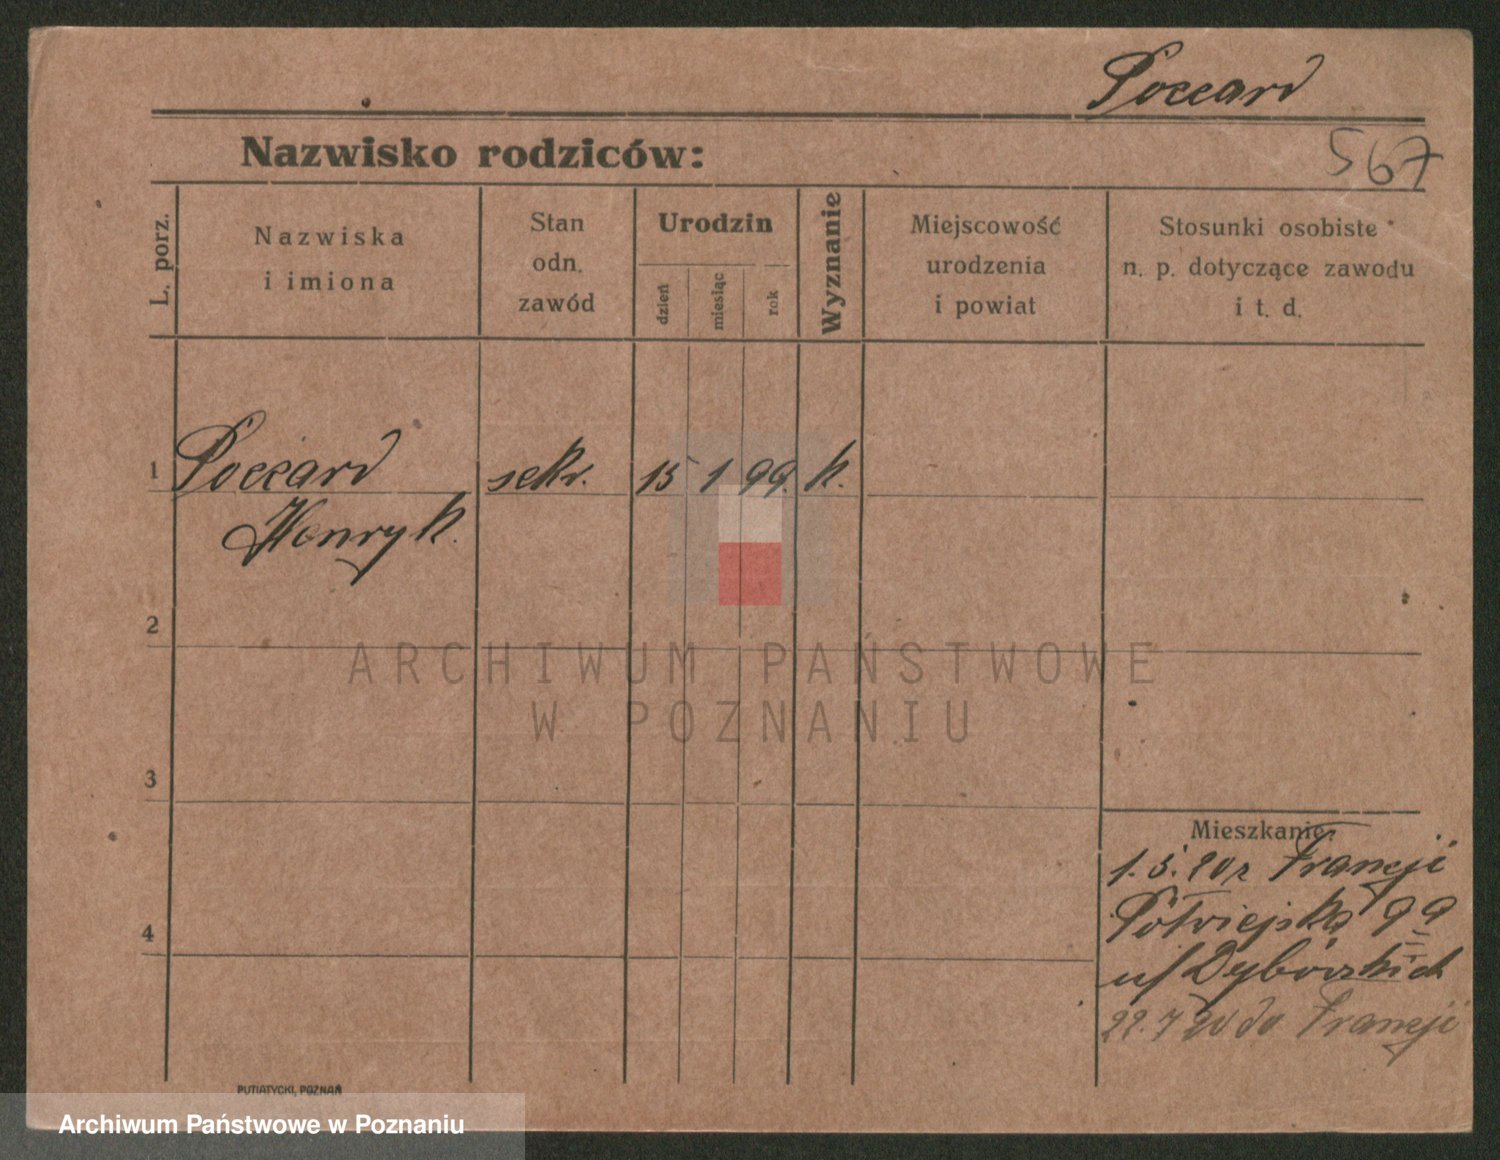 Poccard
567
Nazwisko rodziców:
L. porz.
Nazwiska
i imiona
Stan
odn.
zawód
Urodzin
dzień
miesiąc
rok
Wyznanie
Miejscowość
urodzenia
i powiat
Stosunki osobiste
n. p. dotyczące zawodu
i t. d.
1 Poccard sekr. 15 1 99. k.
Henryk.
2
3
4
Mieszkanie:
1. 5. 20 z Francji
Półwiejska 99
u/ Dybörskich
22. 7 20 do Francji
PUTIATYCKI, POZNAŃ
ARCHIWUM PAŃSTWOWE
W POZNANIU
Archiwum Państwowe w Poznaniu